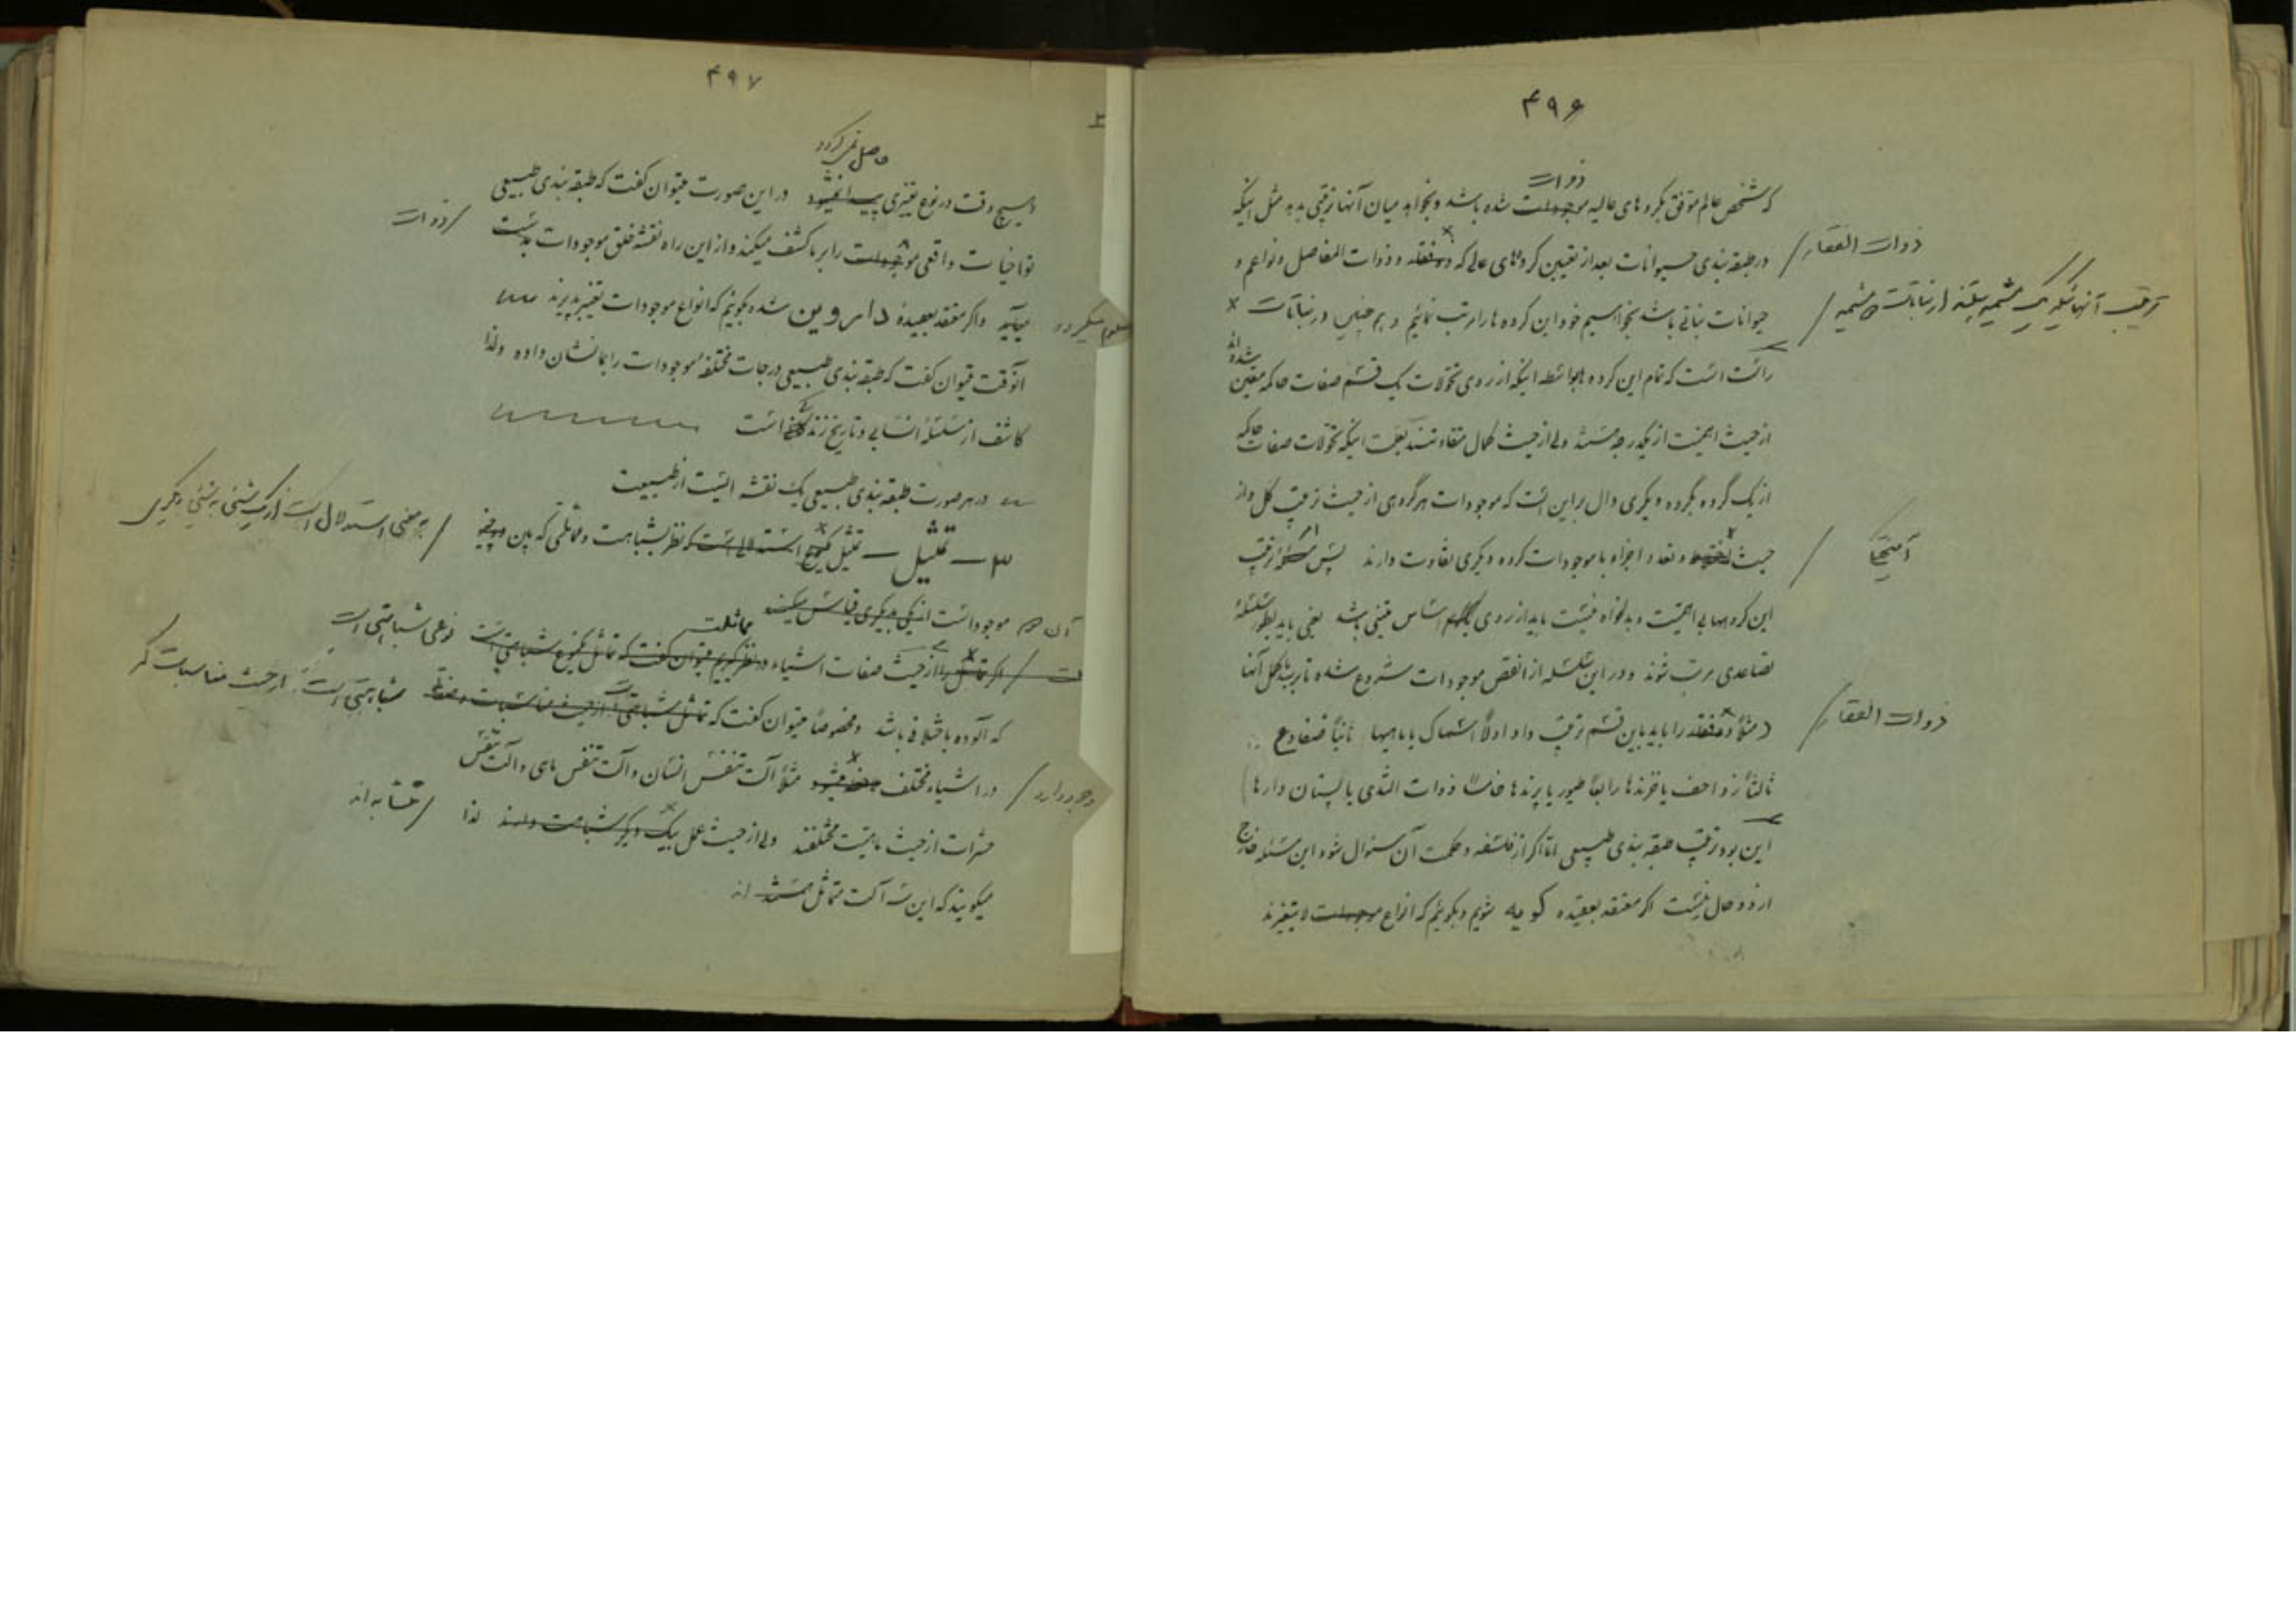 ۴۹۶
ذوات
که شخص عالم موفق بگروه‌های عالیه موجودات شده باشد و بخواهد میان آنها ترتیبی بدهد مثل اینکه
ذوات الفقار /
در طبقه بندی حیوانات بعد از تعیین گروه‌های عالی که ذوفقار و ذوات المفاصل و نواعم و
حیوانات نباتی باشد بخواهیم خود این گروه ها را مرتب نمائیم و هم چنین در نباتات ×
راست است که تمام این گروه ها بواسطه اینکه از روی تحولات یک قسم صفات حاکمه معین شده اند
از حیث اهمیت از یکدرجه هستند ولی از حیث کمال متفاوتند بعلت اینکه تحولات صفات حاکمه
از یک گروه بگروه دیگری دال بر این است که موجودات هر گروهی از حیث ترتیب کل و از
حیث و تعدد اجزاء با موجودات گروه دیگری تفاوت دارند پس ترتیب
این گروهها بی اهمیت و بدلخواه نیست باید از روی اساس متینی باشد یعنی باید بطور سلسلهٔ
تصاعدی مرتب شوند و در این سلسله از انقص موجودات شروع شده تا برسد باکمل آنها
ذوات الفقار /
(مثلاً ذوفقار را باید باین قسم ترتیب داد اولاً اسماک یا ماهیها ثانیاً ضفادع
ثالثاً زواحف یا خزنده‌ها رابعاً طیور یا پرنده‌ها خامساً ذوات الثدی یا پستان دارها)
این بود ترتیب طبقه بندی طبیعی اما اگر از فلسفه و حکمت آن سئوال شود این مسئله خارج
از دو حال نیست اگر معتقد بعقیده کویه شویم و بگوئیم که انواع موجودات لایتغیرند
۴۹۷
حاصل نمی‌گردد
و هیچ وقت در نوع تغییری پیدا نمیشود در این صورت میتوان گفت که طبقه بندی طبیعی
/ ذوات
نواحیات واقعی موجودات را بر ما کشف میکند و از این راه نقشه خلق موجودات بدست
معلوم میگردد
میآید و اگر معتقد بعقیدهٔ داروین شده بگوئیم که انواع موجودات تغییر پذیرند
آنوقت میتوان گفت که طبقه بندی طبیعی درجات مختلفه موجودات را بما نشان داده و لذا
کاشف از مسئلهٔ انسابی و تاریخ زندگانی است
در هر صورت طبقه بندی طبیعی یک نقشه ایست از طبیعت
۳ – تمثیل – تمثیل یکنوع استدلالی است که نظر بشباهت و تماثلی که بین دو چیز
/ به معنی استدلال است از یک شیئی به شیئی دیگری
آن موجود است از یکی بدیگری قیاس میکنند
مماثلت
اگر تماثل را از حیث صفات اشیاء در نظر گیریم میتوان گفت که تماثل یکنوع شباهتی است نوعی شباهتی است
که آلوده باختلافی باشد و مخصوصاً میتوان گفت که تماثل شباهتی از حیث مناسبات مشابهتی است از حیث مناسبات که
وجود دارد /
در اشیاء مختلف مثلاً آلت تنفس انسان و آلت تنفس ماهی و آلت تنفس
حشرات از حیث ماهیت مختلفند ولی از حیث عمل بیکدیگر شباهت دارند لذا / متشابه اند
میگویند که این سه آلت متماثل هستند اند